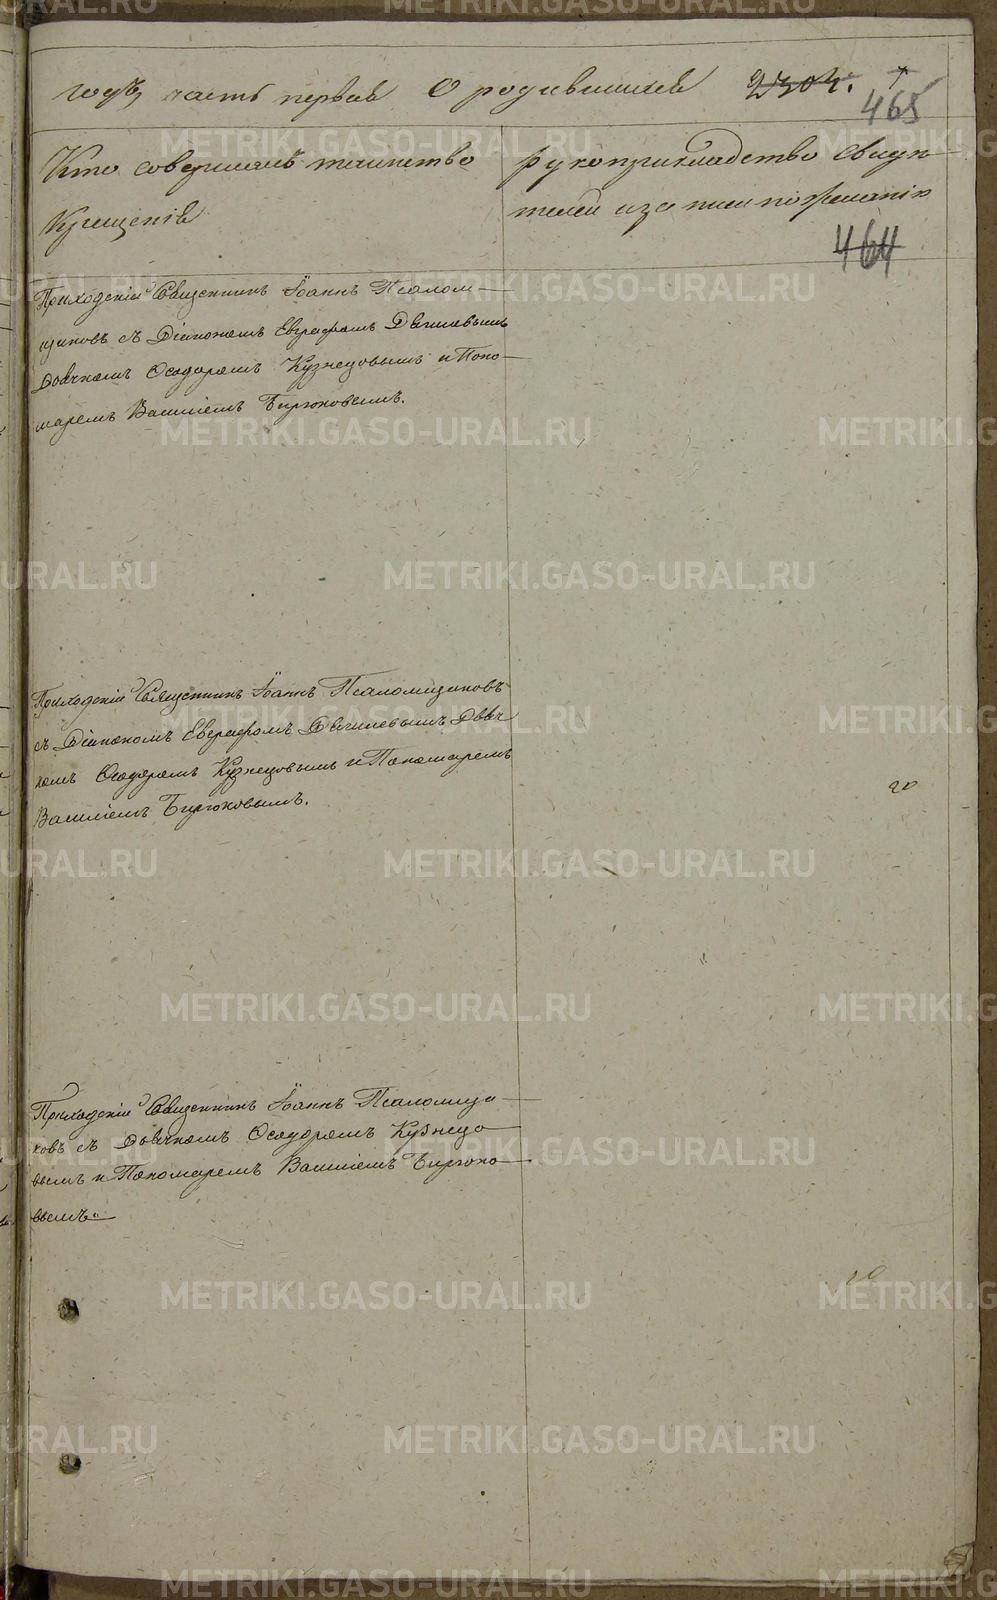 годъ, часть первая О родившихся 2304.
465
Кто совершалъ таинство
Крещенія
рукоприкладство свидѣ-
телей иза писи по желанію
464
Приходскій Священникъ Іоаннъ Псалом-
щиковъ съ Діакономъ Евграфомъ
Дьячкомъ Ѳеодоромъ Кузнецовымъ и Поно-
маремъ Василіемъ Бирюковымъ.
Приходскій Священникъ Іоаннъ Псаломщиковъ
съ Діакономъ Евграфомъ Дьяч
комъ Ѳеодоромъ Кузнецовымъ и Пономаремъ
Василіемъ Бирюковымъ.
Приходскій Священникъ Іоаннъ Псаломщи-
ковъ съ Дьячкомъ Ѳеодоромъ Кузнецо-
вымъ и Пономаремъ Василіемъ Бирюко-
вымъ.
METRIKI.GASO-URAL.RU